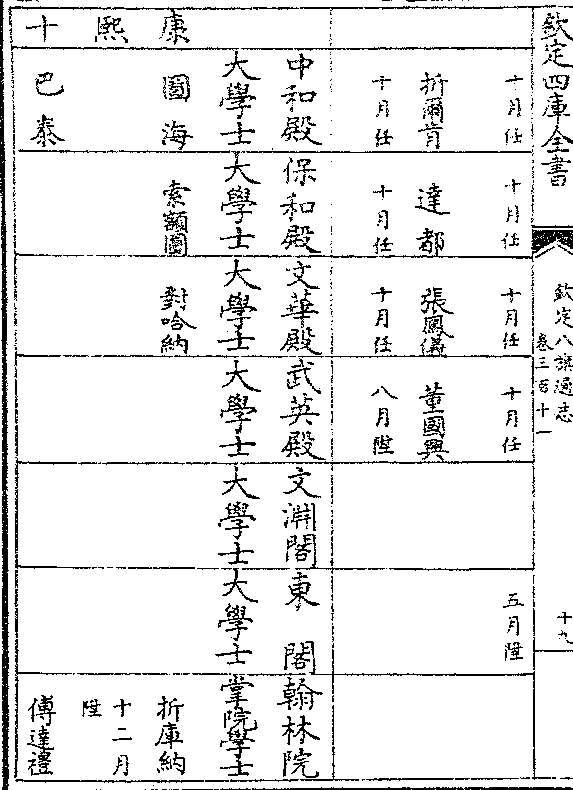 欽定四庫全書
欽定八旗通志
卷三百十一
十九
十月任
十月任
十月任
十月任
五月陞
折爾肯
十月任
達都
十月任
張鳳儀
十月任
董國興
八月陞
康熙十
中和殿
大學士
保和殿
大學士
文華殿
大學士
武英殿
大學士
文淵閣
大學士
東閣
大學士
翰林院
掌院學士
圖海
索額圖
對哈納
折庫納
十二月
陞
巴泰
傅達禮